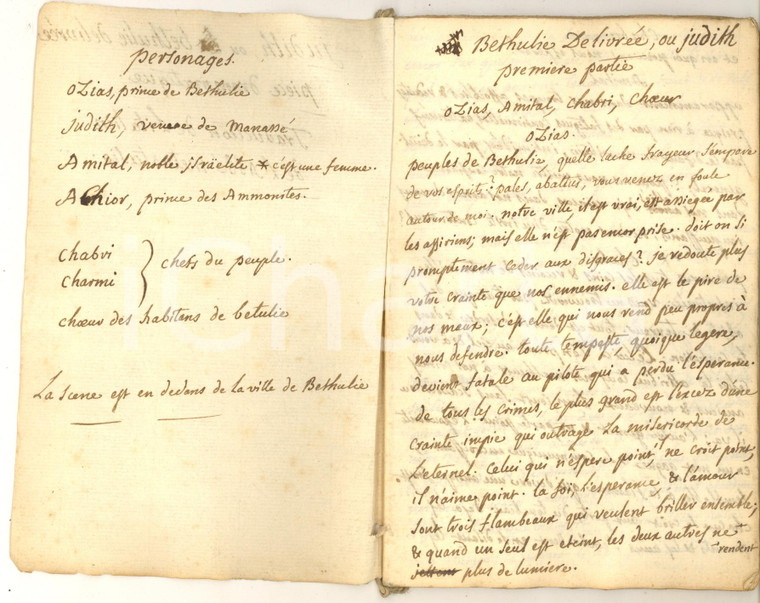 personages.
ozias, prince de Bethulie
judith, veuve de Manassé
Amital, noble israelite * c'est une femme.
Achior, prince des Ammonites.
chabri
charmi
chefs du peuple.
chœur des habitans de betulie
La scene est en dedans de la ville de Bethulie
Bethulie Delivrée, ou judith
premiere partie
ozias, Amital, chabri, chœur
ozias.
peuples de Bethulie, quelle lache frayeur s'empare
de vos esprits? pales, abattus, vous venez en foule
autour de moi. notre ville il est vrai, est assiegée par
les assiriens; mais elle n'est pas encor prise. doit on si
promptement ceder aux disgraces? je redoute plus
votre crainte que nos ennemis. elle est le pire de
nos maux; c'est elle qui nous rend peu propres à
nous defendre. toute tempeste quoique legere,
devient fatale au pilote qui a perdu l'esperance.
de tous les crimes, le plus grand est l'excez d'une
crainte impie qui outrage la misericorde de
l'eternel. Celui qui n'espere point, il ne croit point,
il n'aime point. la foi, l'esperance, & l'amour
sont trois flambeaux qui veulent briller ensemble;
& quand un seul est eteint, les deux autres ne
rendent
jettent plus de lumiere.